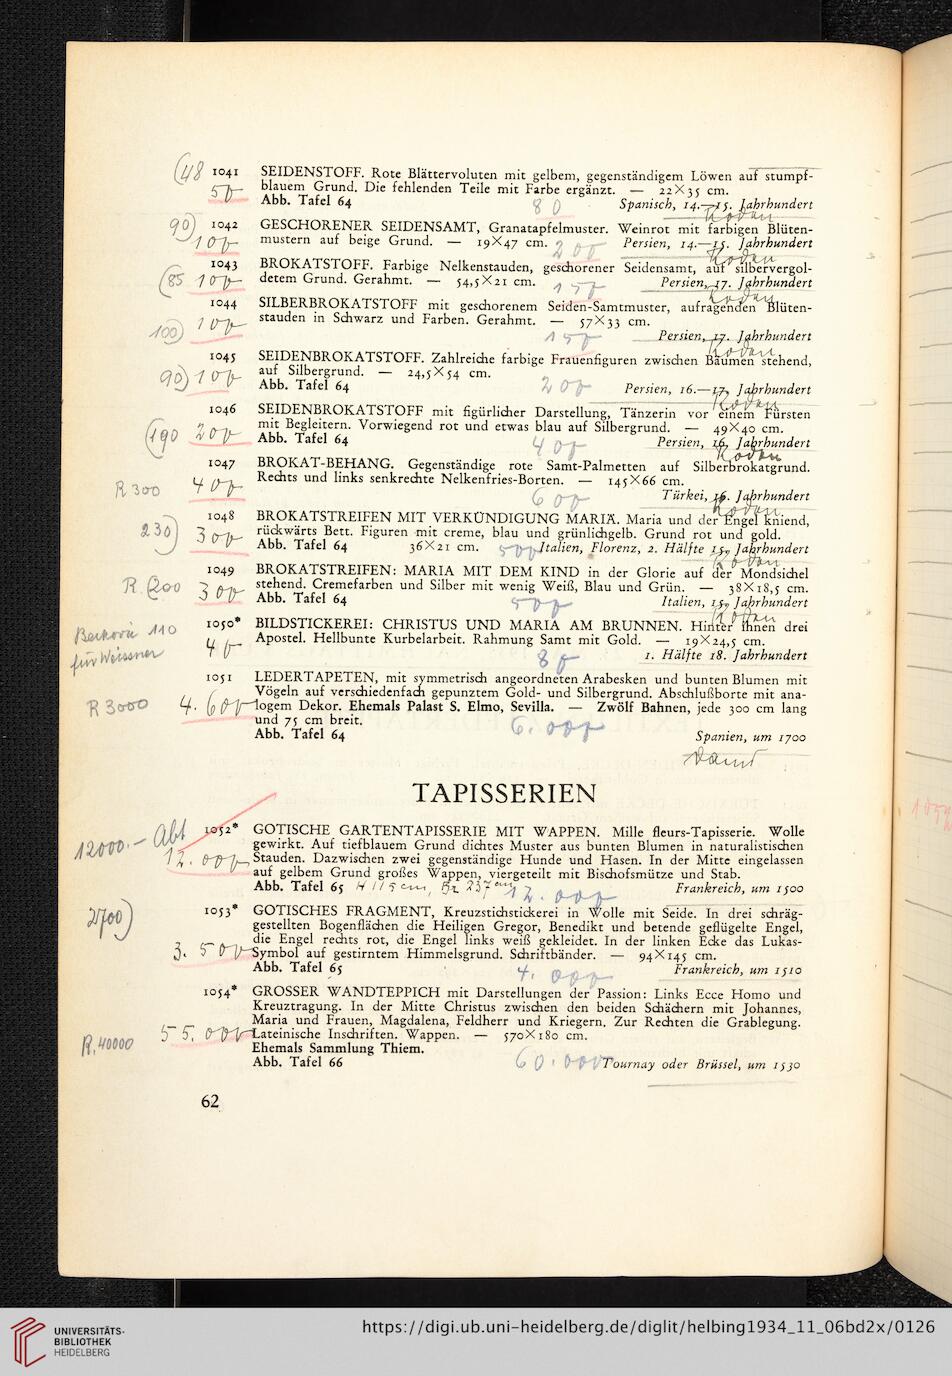 (48 1041 SEIDENSTOFF. Rote Blättervoluten mit gelbem, gegenständigem Löwen auf stumpf-
50 blauem Grund. Die fehlenden Teile mit Farbe ergänzt. — 22×35 cm.
Abb. Tafel 64 80 Spanisch, 14.—15. Jahrhundert
90) 1042 GESCHORENER SEIDENSAMT, Granatapfelmuster. Weinrot mit farbigen Blüten-
100 mustern auf beige Grund. — 19×47 cm. 200 Persien, 14.—15. Jahrhundert
1043 BROKATSTOFF. Farbige Nelkenstauden, geschorener Seidensamt, auf silbervergol-
(85 100 detem Grund. Gerahmt. — 54,5×21 cm. 150 Persien, 17. Jahrhundert
1044 SILBERBROKATSTOFF mit geschorenem Seiden-Samtmuster, aufragenden Blüten-
100) 100 stauden in Schwarz und Farben. Gerahmt. — 57×33 cm.
150 Persien, 17. Jahrhundert
1045 SEIDENBROKATSTOFF. Zahlreiche farbige Frauenfiguren zwischen Bäumen stehend,
90) 100 auf Silbergrund. — 24,5×54 cm.
Abb. Tafel 64 200 Persien, 16.—17. Jahrhundert
1046 SEIDENBROKATSTOFF mit figürlicher Darstellung, Tänzerin vor einem Fürsten
(190 200 mit Begleitern. Vorwiegend rot und etwas blau auf Silbergrund. — 49×40 cm.
Abb. Tafel 64 400 Persien, 16. Jahrhundert
1047 BROKAT-BEHANG. Gegenständige rote Samt-Palmetten auf Silberbrokatgrund.
R 300 400 Rechts und links senkrechte Nelkenfries-Borten. — 145×66 cm.
600 Türkei, 16. Jahrhundert
1048 BROKATSTREIFEN MIT VERKÜNDIGUNG MARIÄ. Maria und der Engel kniend,
230) 300 rückwärts Bett. Figuren mit creme, blau und grünlichgelb. Grund rot und gold.
Abb. Tafel 64 36×21 cm. 500 Italien, Florenz, 2. Hälfte 15. Jahrhundert
1049 BROKATSTREIFEN: MARIA MIT DEM KIND in der Glorie auf der Mondsichel
R. (200 300 stehend. Cremefarben und Silber mit wenig Weiß, Blau und Grün. — 38×18,5 cm.
Abb. Tafel 64 500 Italien, 15. Jahrhundert
110 1050* BILDSTICKEREI: CHRISTUS UND MARIA AM BRUNNEN. Hinter ihnen drei
für 40 Apostel. Hellbunte Kurbelarbeit. Rahmung Samt mit Gold. — 19×24,5 cm.
80 1. Hälfte 18. Jahrhundert
1051 LEDERTAPETEN, mit symmetrisch angeordneten Arabesken und bunten Blumen mit
Vögeln auf verschiedenfach gepunztem Gold- und Silbergrund. Abschlußborte mit ana-
R 3000 4.600 logem Dekor. Ehemals Palast S. Elmo, Sevilla. — Zwölf Bahnen, jede 300 cm lang
und 75 cm breit. 6.000
Abb. Tafel 64 Spanien, um 1700
TAPISSERIEN
12000.— Abt 1052* GOTISCHE GARTENTAPISSERIE MIT WAPPEN. Mille fleurs-Tapisserie. Wolle
gewirkt. Auf tiefblauem Grund dichtes Muster aus bunten Blumen in naturalistischen
12.000 Stauden. Dazwischen zwei gegenständige Hunde und Hasen. In der Mitte eingelassen
auf gelbem Grund großes Wappen, viergeteilt mit Bischofsmütze und Stab.
Abb. Tafel 65 H 115 cm, Br 237 cm 12.000 Frankreich, um 1500
2700) 1053* GOTISCHES FRAGMENT, Kreuzstichstickerei in Wolle mit Seide. In drei schräg-
gestellten Bogenflächen die Heiligen Gregor, Benedikt und betende geflügelte Engel,
die Engel rechts rot, die Engel links weiß gekleidet. In der linken Ecke das Lukas-
3.500 Symbol auf gestirntem Himmelsgrund. Schriftbänder. — 94×145 cm.
Abb. Tafel 65 4.000 Frankreich, um 1510
1054* GROSSER WANDTEPPICH mit Darstellungen der Passion: Links Ecce Homo und
Kreuztragung. In der Mitte Christus zwischen den beiden Schächern mit Johannes,
Maria und Frauen, Magdalena, Feldherr und Kriegern. Zur Rechten die Grablegung.
R. 40000 55.000 Lateinische Inschriften. Wappen. — 570×180 cm.
Ehemals Sammlung Thiem.
Abb. Tafel 66 60.000 Tournay oder Brüssel, um 1530
62
UNIVERSITÄTS-
BIBLIOTHEK
HEIDELBERG
https://digi.ub.uni-heidelberg.de/diglit/helbing1934_11_06bd2x/0126